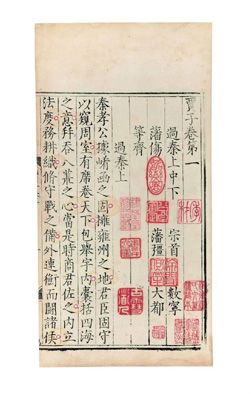 賈子卷第一
過秦上中下 宗首 數寧
藩傷 藩彊 大都
等齊
過秦上
秦孝公據崤函之固擁雍州之地君臣固守
以窺周室有席卷天下包舉宇内囊括四海
之意并吞八荒之心當是時商君佐之内立
法度務耕織修守戰之備外連衡而鬭諸侯